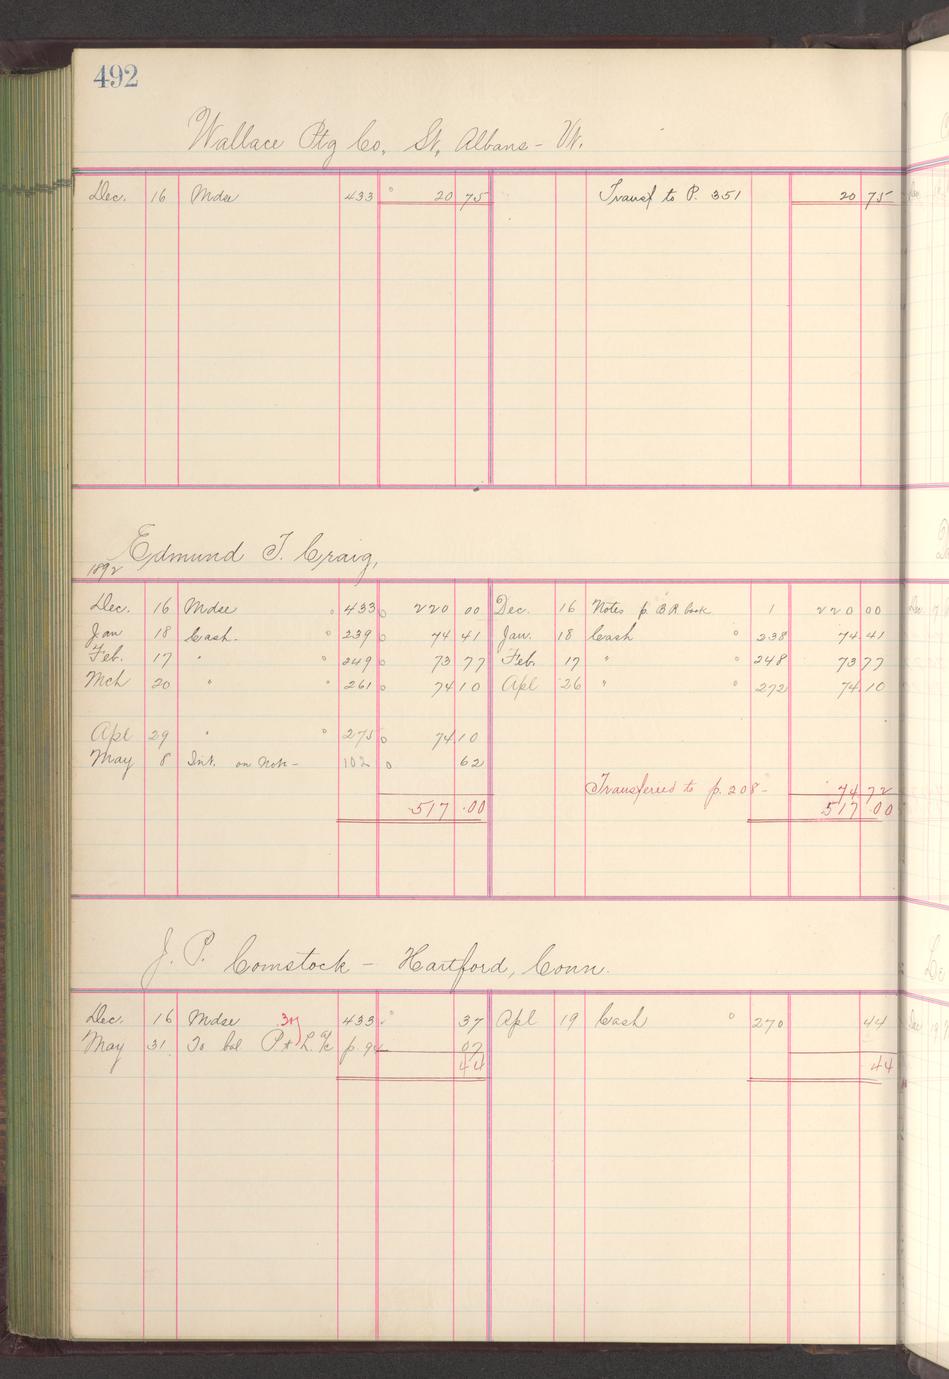 492
Wallace Ptg Co, St, Albans - Vt.
Dec. 16 Mdse 433 20 75 Transf to P. 351 20 75
Edmund T. Craig,
1892
Dec. 16 Mdse 433 220 00 Dec. 16 Notes p. B R book 1 220 00
Jan 18 Cash. 239 74 41 Jan. 18 Cash 238 74 41
Feb. 17 " 249 73 77 Feb. 17 " 248 73 77
Mch 20 " 261 74 10 Apl 26 " 272 74 10
Apl 29 " 275 74 10
May 8 Int. on Note - 102 62
Transferred to p. 208 - 74 72
517 .00 517 .00
J. P. Comstock - Hartford, Conn.
Dec. 16 Mdse 433 37 Apl 19 Cash 270 44
May 31. To bal P & L. a/c p. 94 07
44 44